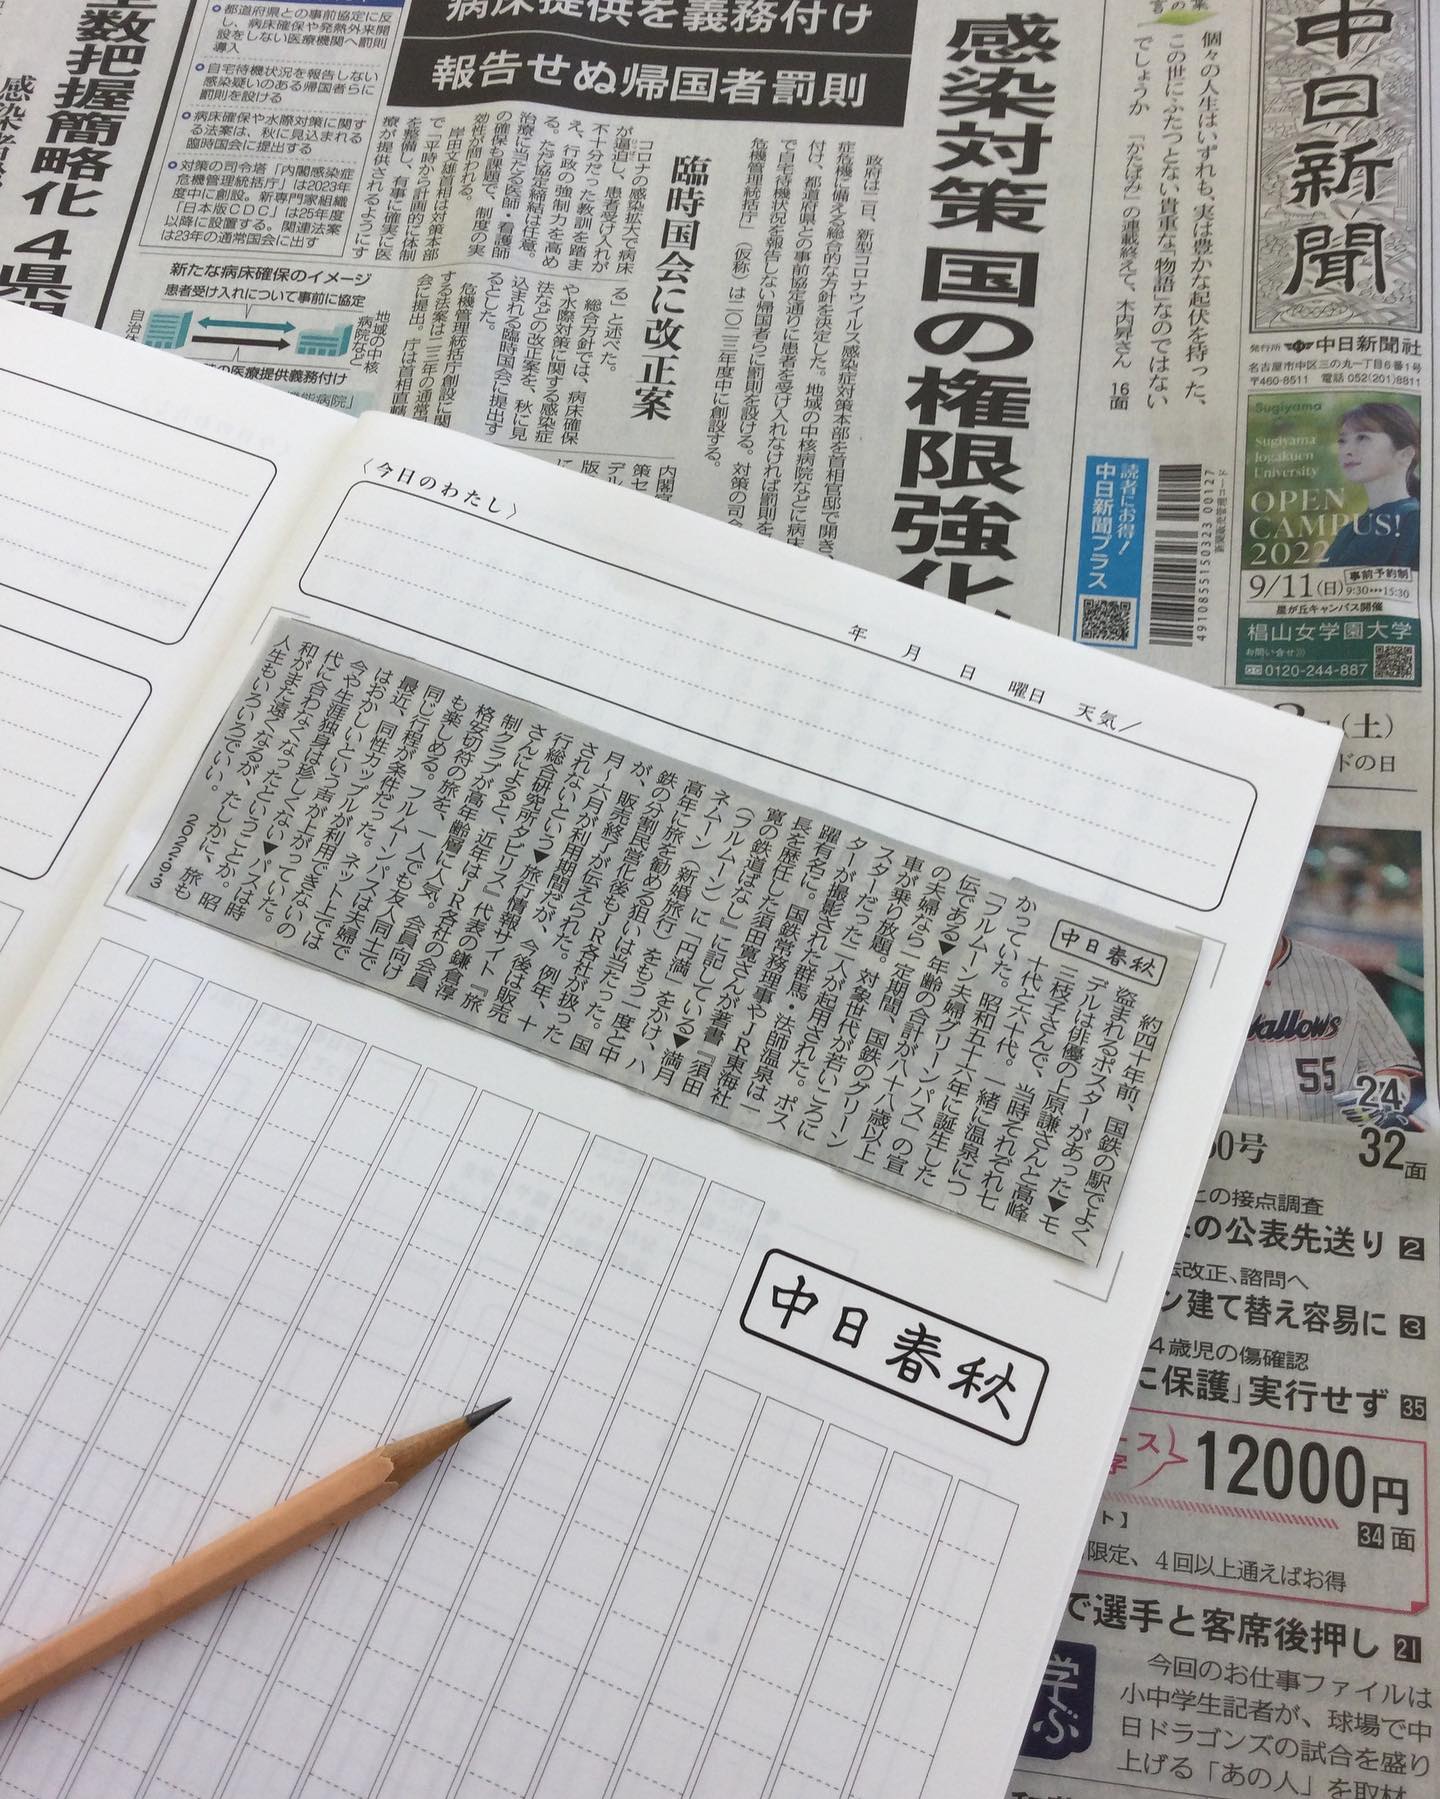 中日新聞
発行所 中日新聞社
名古屋市中区三の丸一丁目6番1号
〒460-8511 電話 052(201)8811
Sugiyama
Sugiyama
Jogakuen
University
OPEN
CAMPUS!
2022
9/11(日)
事前予約制
9:30・・・15:30
星が丘キャンパス開催
椙山女学園大学
お問い合せ
0120-244-887
(土)
ドの日
個々の人生はいずれも、実は豊かな起伏を持った、
この世にふたつとない貴重な「物語」なのではない
でしょうか 「かたばみ」の連載終えて、木内昇さん 16面
読者にお得!
中日新聞プラス
4910855150323 00127
感染対策 国の権限強化
病床提供を義務付け
報告せぬ帰国者罰則
臨時国会に改正案
政府は二日、新型コロナウイルス感染症対策本部を首相官邸で開き
症危機に備える総合的な方針を決定した。地域の中核病院などに病床
付け、都道府県との事前協定通りに患者を受け入れなければ罰則を
で自宅待機状況を報告しない帰国者らに罰則を設ける。対策の司令
危機管理統括庁」(仮称)は二〇二三年度中に創設する。
コロナの感染拡大で病床
が逼迫し、患者受け入れが
不十分だった教訓を踏ま
え、行政の強制力を高め
る。ただ協定締結は任意。
治療に当たる医師・看護師
の確保も課題で、制度の実
効性が問われる。
岸田文雄首相は対策本部
で「平時から計画的に体制
を整備し、有事に確実に医
療が提供されるようにす
る」と述べた。
総合方針では、病床確保
や水際対策に関する感染症
法などの改正案を、秋に見
込まれる臨時国会に提出す
るとした。
危機管理統括庁創設に関
する法案は二三年の通常国
会に提出。庁は首相直轄
都道府県との事前協定に反
し、病床確保や発熱外来開
設をしない医療機関へ罰則
導入
自宅待機状況を報告しない
感染疑いのある帰国者らに
罰則を設ける
病床確保や水際対策に関す
る法案は、秋に見込まれる
臨時国会に提出する
対策の司令塔「内閣感染症
危機管理統括庁」は2023年
度中に創設。新専門家組織
「日本版CDC」は25年度
以降に設置する。関連法案
は23年の通常国会に出す
新たな病床確保のイメージ
患者受け入れについて事前に協定
地域の中核
病院など
の医療提供義務付け
数把握簡略化 4県
〈今日のわたし〉
年 月 日 曜日 天気/
中日春秋
約四十年前、国鉄の駅でよく
盗まれるポスターがあった▼モ
デルは俳優の上原謙さんと高峰
三枝子さんで、当時それぞれ七
十代と六十代。一緒に温泉につ
かっていた。昭和五十六年に誕生した
「フルムーン夫婦グリーンパス」の宣
伝である▼年齢の合計が八十八歳以上
の夫婦なら一定期間、国鉄のグリーン
車が乗り放題。対象世代が若いころに
スターだった二人が起用された。ポス
ターが撮影された群馬・法師温泉は一
躍有名に。国鉄常務理事やJR東海社
長を歴任した須田寛さんが著書『須田
寛の鉄道ばなし』に記している▼満月
(フルムーン)に「円満」をかけ、ハ
ネムーン(新婚旅行)をもう一度と中
高年に旅を勧める狙いは当たった。国
鉄の分割民営化後もJR各社が扱った
が、販売終了が伝えられた。例年、十
月〜六月が利用期間だが、今後は販売
されないという▼旅行情報サイト『旅
行総合研究所タビリス』代表の鎌倉淳
さんによると、近年はJR各社の会員
制クラブが高年齢層に人気。会員向け
格安切符の旅を、一人でも友人同士で
も楽しめる。フルムーンパスは夫婦で
同じ行程が条件だった。ネット上では
最近、同性カップルが利用できないの
はおかしいという声が上がっていた。
今や生涯独身は珍しくない▼パスは時
代に合わなくなったということか。昭
和がまた遠くなるが、たしかに、旅も
人生もいろいろでいい。 2022・9・3
中日春秋
55
24
32面
との接点調査
の公表先送り 2
法改正、諮問へ
ン建て替え容易に 3
4歳児の傷確認
に保護」実行せず 35
12000円
34面
限定、4回以上通えばお得
で選手と客席後押し 21
学ぶ
今回のお仕事ファイルは
小中学生記者が、球場で中
日ドラゴンズの試合を盛り
上げる「あの人」を取材